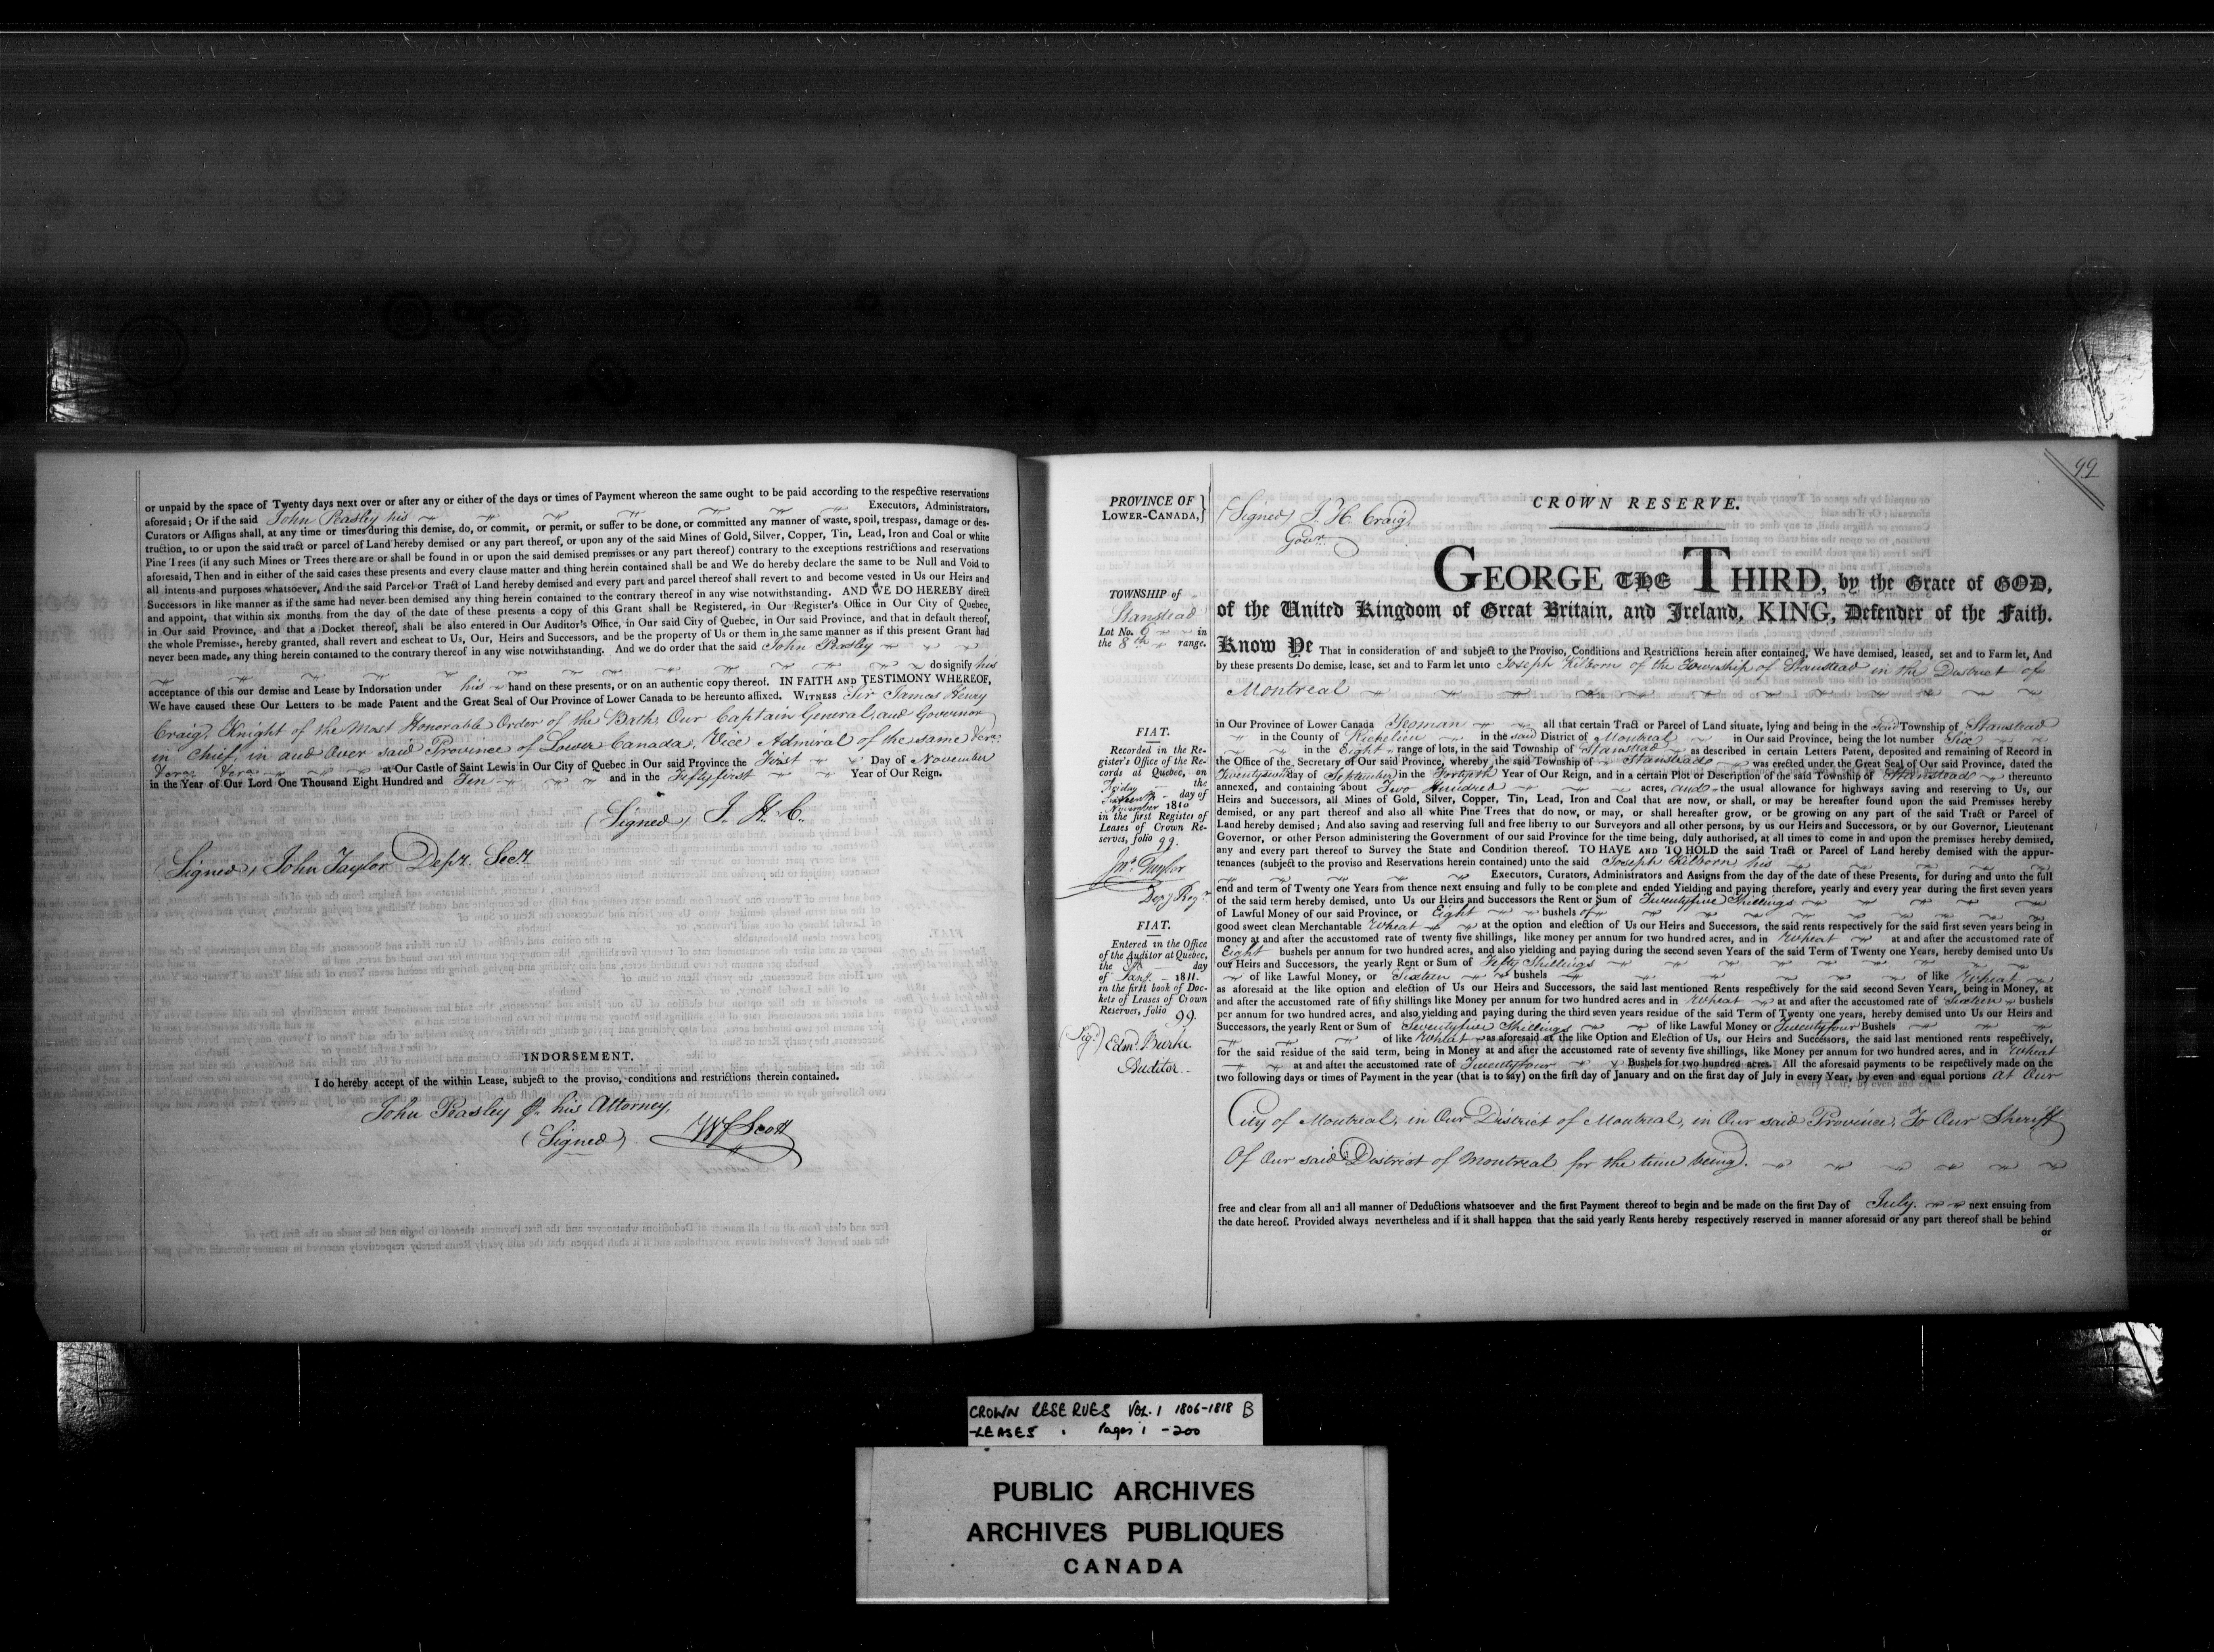 or unpaid by the space of Twenty days next over or after any or either of the days or times of Payment whereon the same ought to be paid according to the respective reservations
aforesaid; Or if the said John Peasley his Executors, Administrators,
Curators or Assigns shall, at any time or times during this demise, do, or commit, or permit, or suffer to be done, or committed any manner of waste, spoil, trespass, damage or des-
truction, to or upon the said tract or parcel of Land hereby demised or any part thereof, or upon any of the said Mines of Gold, Silver, Copper, Tin, Lead, Iron and Coal or white
Pine Trees (if any such Mines or Trees there are or shall be found in or upon the said demised premises or any part thereof) contrary to the exceptions restrictions and reservations
aforesaid, Then and in either of the said cases these presents and every clause matter and thing herein contained shall be and We do hereby declare the same to be Null and Void to
all intents and purposes whatsoever, And the said Parcel or Tract of Land hereby demised and every part and parcel thereof shall revert to and become vested in Us our Heirs and
Successors in like manner as if the same had never been demised any thing herein contained to the contrary thereof in any wise notwithstanding. AND WE DO HEREBY direct
and appoint, that within six months from the day of the date of these presents a copy of this Grant shall be Registered, in Our Register's Office in Our City of Quebec,
in Our said Province, and that a Docket thereof, shall be also entered in Our Auditor's Office, in Our said City of Quebec, in Our said Province, and that in default thereof,
the whole Premises, hereby granted, shall revert and escheat to Us, Our, Heirs and Successors, and be the property of Us or them in the same manner as if this present Grant had
never been made, any thing herein contained to the contrary thereof in any wise notwithstanding. And we do order that the said John Peasley
do signify his
acceptance of this our demise and Lease by Indorsation under his hand on these presents, or on an authentic copy thereof. IN FAITH AND TESTIMONY WHEREOF,
We have caused these Our Letters to be made Patent and the Great Seal of Our Province of Lower Canada to be hereunto affixed. WITNESS Sir James Henry
Craig, Knight of the Most Honorable Order of the Bath, Our Captain General, and Governor
in Chief, in and Over said Province of Lower Canada, Vice Admiral of the same &ca.
&ca. &ca. at Our Castle of Saint Lewis in Our City of Quebec in Our said Province the First Day of November
in the Year of Our Lord One Thousand Eight Hundred and Ten and in the Fiftyfirst Year of Our Reign.
(Signed) J. H. C.
(Signed) John Taylor Depy. Secy.
INDORSEMENT.
I do hereby accept of the within Lease, subject to the proviso, conditions and restrictions therein contained.
John Peasley p. his Attorney,
(Signed) Wf Scott
99
PROVINCE OF
LOWER-CANADA, }
(Signed) J. H. Craig,
Govr.
CROWN RESERVE.
TOWNSHIP of
Stanstead
Lot No. 6 in
the 8th range.
GEORGE THE THIRD, by the Grace of GOD,
of the United Kingdom of Great Britain, and Ireland, KING, Defender of the Faith.
Know Ye That in consideration of and subject to the Proviso, Conditions and Restrictions herein after contained, We have demised, leased, set and to Farm let, And
by these presents Do demise, lease, set and to Farm let unto Joseph Kilborn of the Township of Stanstead in the District of
Montreal
in Our Province of Lower Canada Yeoman all that certain Tract or Parcel of Land situate, lying and being in the said Township of Stanstead
in the County of Richelieu in the said District of Montreal in Our said Province, being the lot number Six
in the Eight range of lots, in the said Township of Stanstead as described in certain Letters Patent, deposited and remaining of Record in
the Office of the Secretary of Our said Province, whereby, the said Township of Stanstead was erected under the Great Seal of Our said Province, dated the
day of September in the Year of Our Reign, and in a certain Plot or Description of the said Township of Stanstead thereunto
annexed, and containing about Two Hundred acres, and the usual allowance for highways saving and reserving to Us, our
Heirs and Successors, all Mines of Gold, Silver, Copper, Tin, Lead, Iron and Coal that are now, or shall, or may be hereafter found upon the said Premises hereby
demised, or any part thereof and also all white Pine Trees that do now, or may, or shall hereafter grow, or be growing on any part of the said Tract or Parcel of
Land hereby demised; And also saving and reserving full and free liberty to our Surveyors and all other persons, by us our Heirs and Successors, or by our Governor, Lieutenant
Governor, or other Person administering the Government of our said Province for the time being, duly authorised, at all times to come in and upon the premises hereby demised,
any and every part thereof to Survey the State and Condition thereof. TO HAVE AND TO HOLD the said Tract or Parcel of Land hereby demised with the appur-
tenances (subject to the proviso and Reservations herein contained) unto the said Joseph Kilborn his
Executors, Curators, Administrators and Assigns from the day of the date of these Presents, for during and unto the full
end and term of Twenty one Years from thence next ensuing and fully to be complete and ended Yielding and paying therefore, yearly and every year during the first seven years
of the said term hereby demised, unto Us our Heirs and Successors the Rent or Sum of Twentyfive Shillings
of Lawful Money of our said Province, or Eight bushels of
good sweet clean Merchantable Wheat at the option and election of Us our Heirs and Successors, the said rents respectively for the said first seven years being in
money at and after the accustomed rate of twenty five shillings, like money per annum for two hundred acres, and in Wheat at and after the accustomed rate of
Eight bushels per annum for two hundred acres, and also yielding and paying during the second seven Years of the said Term of Twenty one Years, hereby demised unto Us
our Heirs and Successors, the yearly Rent or Sum of Fifty Shillings
of like Lawful Money, or Sixteen bushels of like Wheat
as aforesaid at the like option and election of Us our Heirs and Successors, the said last mentioned Rents respectively for the said second Seven Years, being in Money, at
and after the accustomed rate of fifty shillings like Money per annum for two hundred acres and in Wheat at and after the accustomed rate of Sixteen bushels
per annum for two hundred acres, and also yielding and paying during the third seven years residue of the said Term of Twenty one years, hereby demised unto Us our Heirs and
Successors, the yearly Rent or Sum of Seventyfive Shillings of like Lawful Money or Twentyfour Bushels
of like Wheat as aforesaid at the like Option and Election of Us, our Heirs and Successors, the said last mentioned rents respectively,
for the said residue of the said term, being in Money at and after the accustomed rate of seventy five shillings, like Money per annum for two hundred acres, and in Wheat
at and after the accustomed rate of Twentyfour Bushels for two hundred acres. All the aforesaid payments to be respectively made on the
two following days or times of Payment in the year (that is to say) on the first day of January and on the first day of July in every Year, by even and equal portions at Our
City of Montreal, in Our District of Montreal, in Our said Province, To Our Sheriff
Of Our said District of Montreal for the time being.
free and clear from all and all manner of Deductions whatsoever and the first Payment thereof to begin and be made on the first Day of July next ensuing from
the date hereof. Provided always nevertheless and if it shall happen that the said yearly Rents hereby respectively reserved in manner aforesaid or any part thereof shall be behind
or
FIAT.
Recorded in the Re-
gister's Office of the Re-
cords at Quebec, on
Friday the
day of
November 1810
in the first Register of
Leases of Crown Re-
serves, folio 99.
Jno. Taylor
Depy Regr.
FIAT.
Entered in the Office
of the Auditor at Quebec,
the 5th day
of Jany. 1811.
in the first book of Doc-
kets of Leases of Crown
Reserves, folio 99.
(Sig.) Edm. Burke
Auditor.
CROWN RESERVES VOL. 1 1806-1818 B
-LEASES. Pages 1 - 200
PUBLIC ARCHIVES
ARCHIVES PUBLIQUES
CANADA